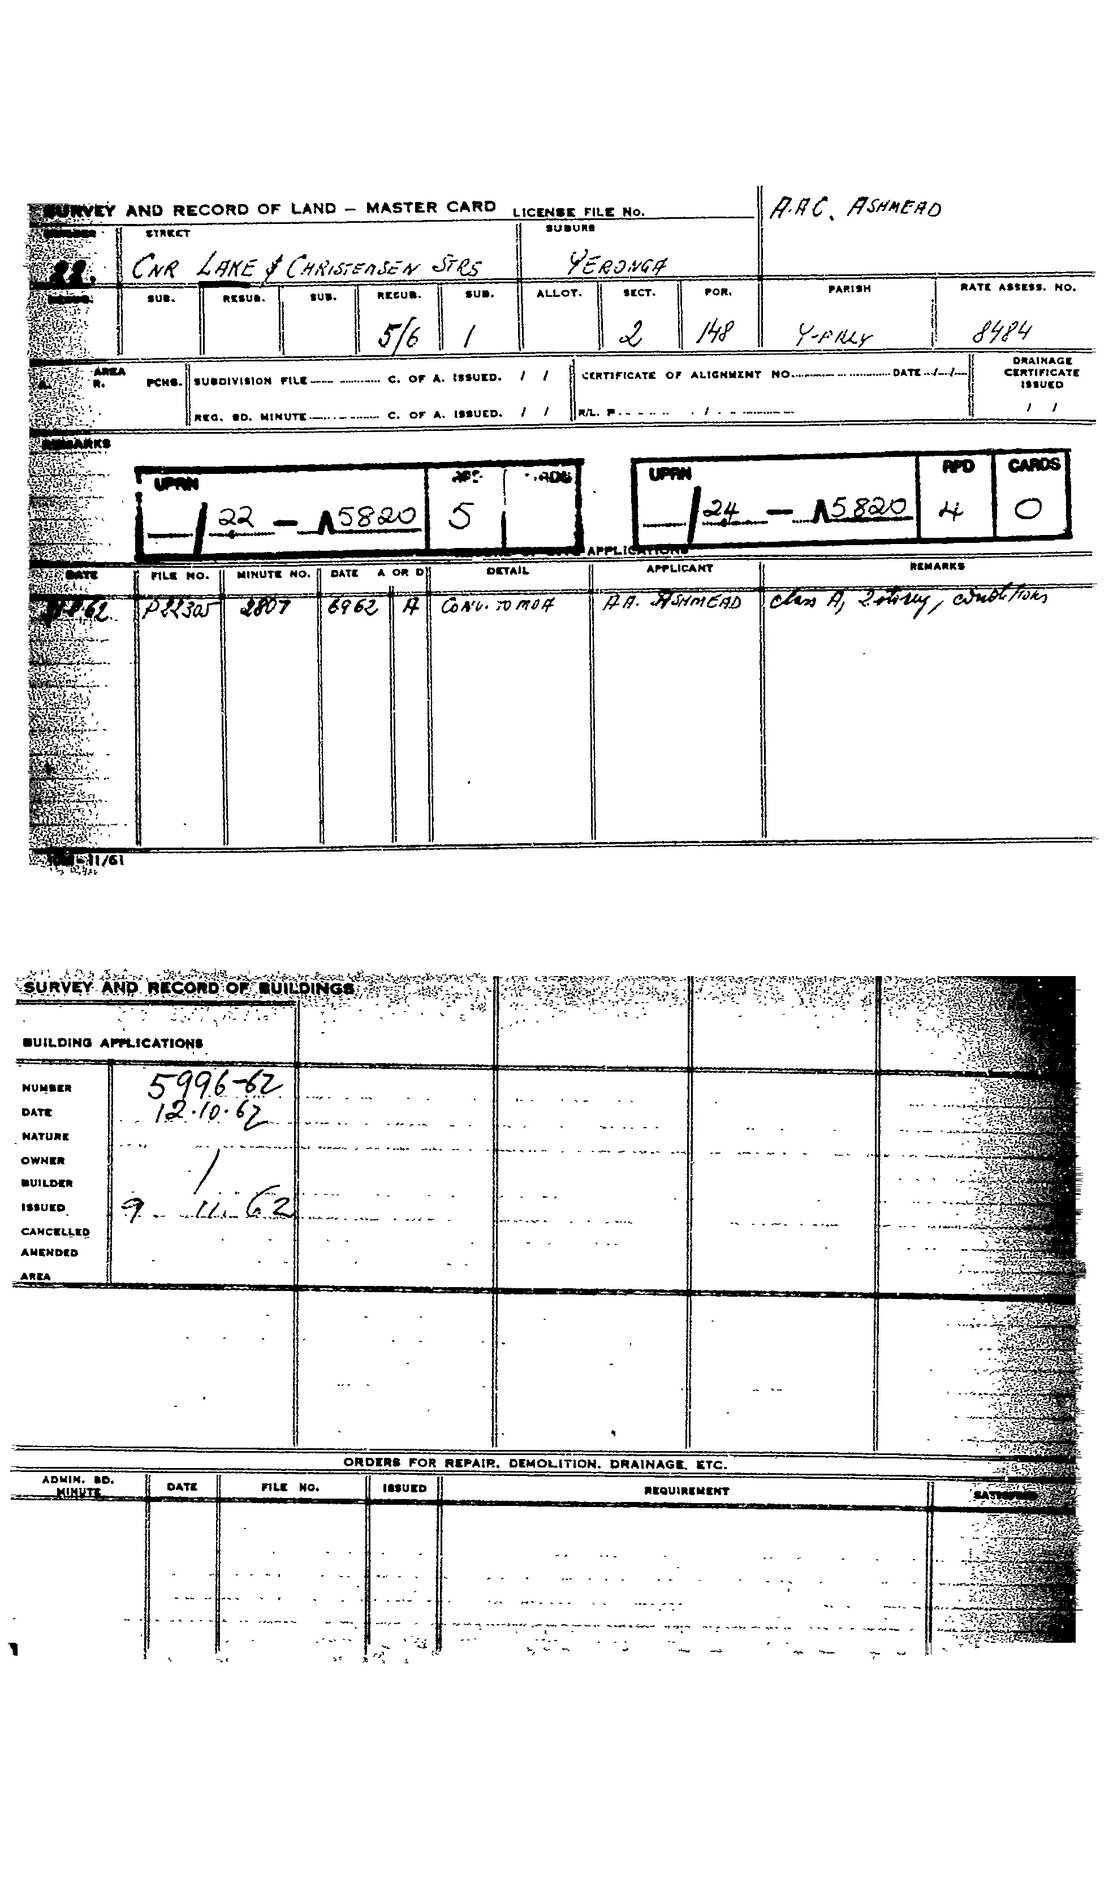 SURVEY AND RECORD OF LAND – MASTER CARD LICENSE FILE No. A.A.C. ASHMEAD
NUMBER STREET SUBURB
22. CNR LAKE & CHRISTENSEN STRS YERONGA
SUB. RESUB. SUB. RESUB. SUB. ALLOT. SECT. POR. PARISH RATE ASSESS. NO.
5/6 1 2 148 Y-PILLY 8484
A. AREA R. PCHS. SUBDIVISION FILE C. OF A. ISSUED. / / CERTIFICATE OF ALIGNMENT NO. DATE / / DRAINAGE CERTIFICATE ISSUED
REG. BD. MINUTE C. OF A. ISSUED. / / R/L. P / / /
REMARKS
UPRN CARDS UPRN RPD CARDS
/ 22 – A5820 5 / 24 – A5820 4 0
APPLICATIONS
DATE FILE NO. MINUTE NO. DATE A OR D DETAIL APPLICANT REMARKS
62 P22305 2807 6962 A CONV. TO MDA A.A. ASHMEAD class A, 2 storey, conditions
11/61
SURVEY AND RECORD OF BUILDINGS
BUILDING APPLICATIONS
NUMBER 5996-62
DATE 12.10.62
NATURE
OWNER /
BUILDER
ISSUED 9. 11. 62
CANCELLED
AMENDED
AREA
ORDERS FOR REPAIR, DEMOLITION, DRAINAGE, ETC.
ADMIN. BD. MINUTE DATE FILE NO. ISSUED REQUIREMENT